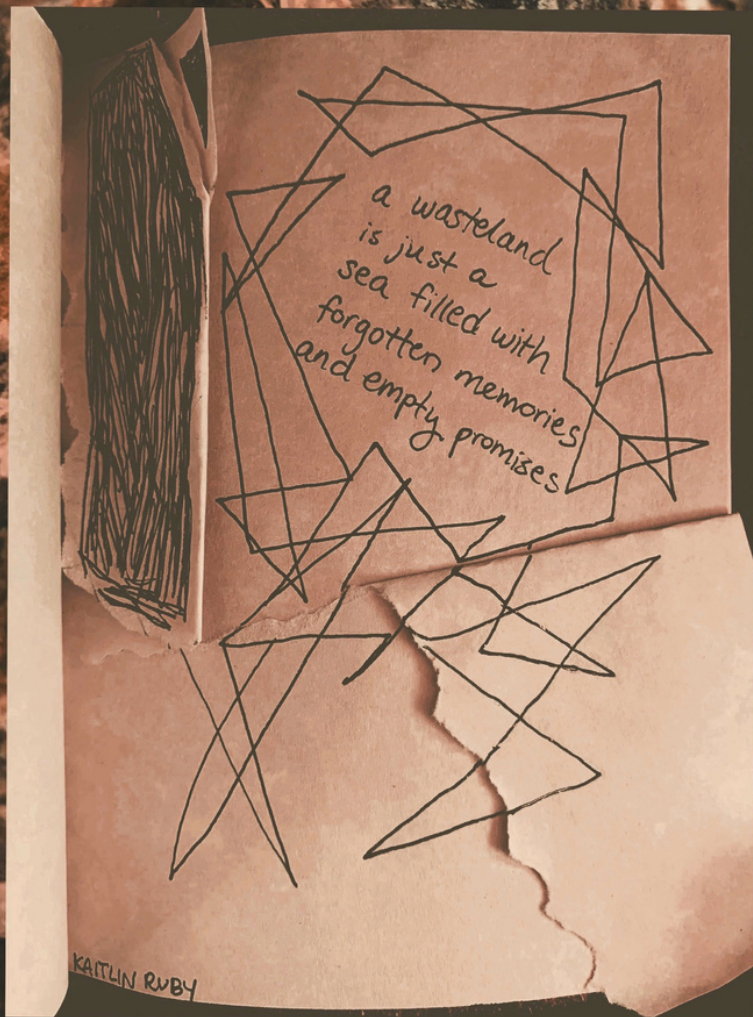 a wasteland
is just a
sea filled with
forgotten memories
and empty promises
KAITLIN RUBY